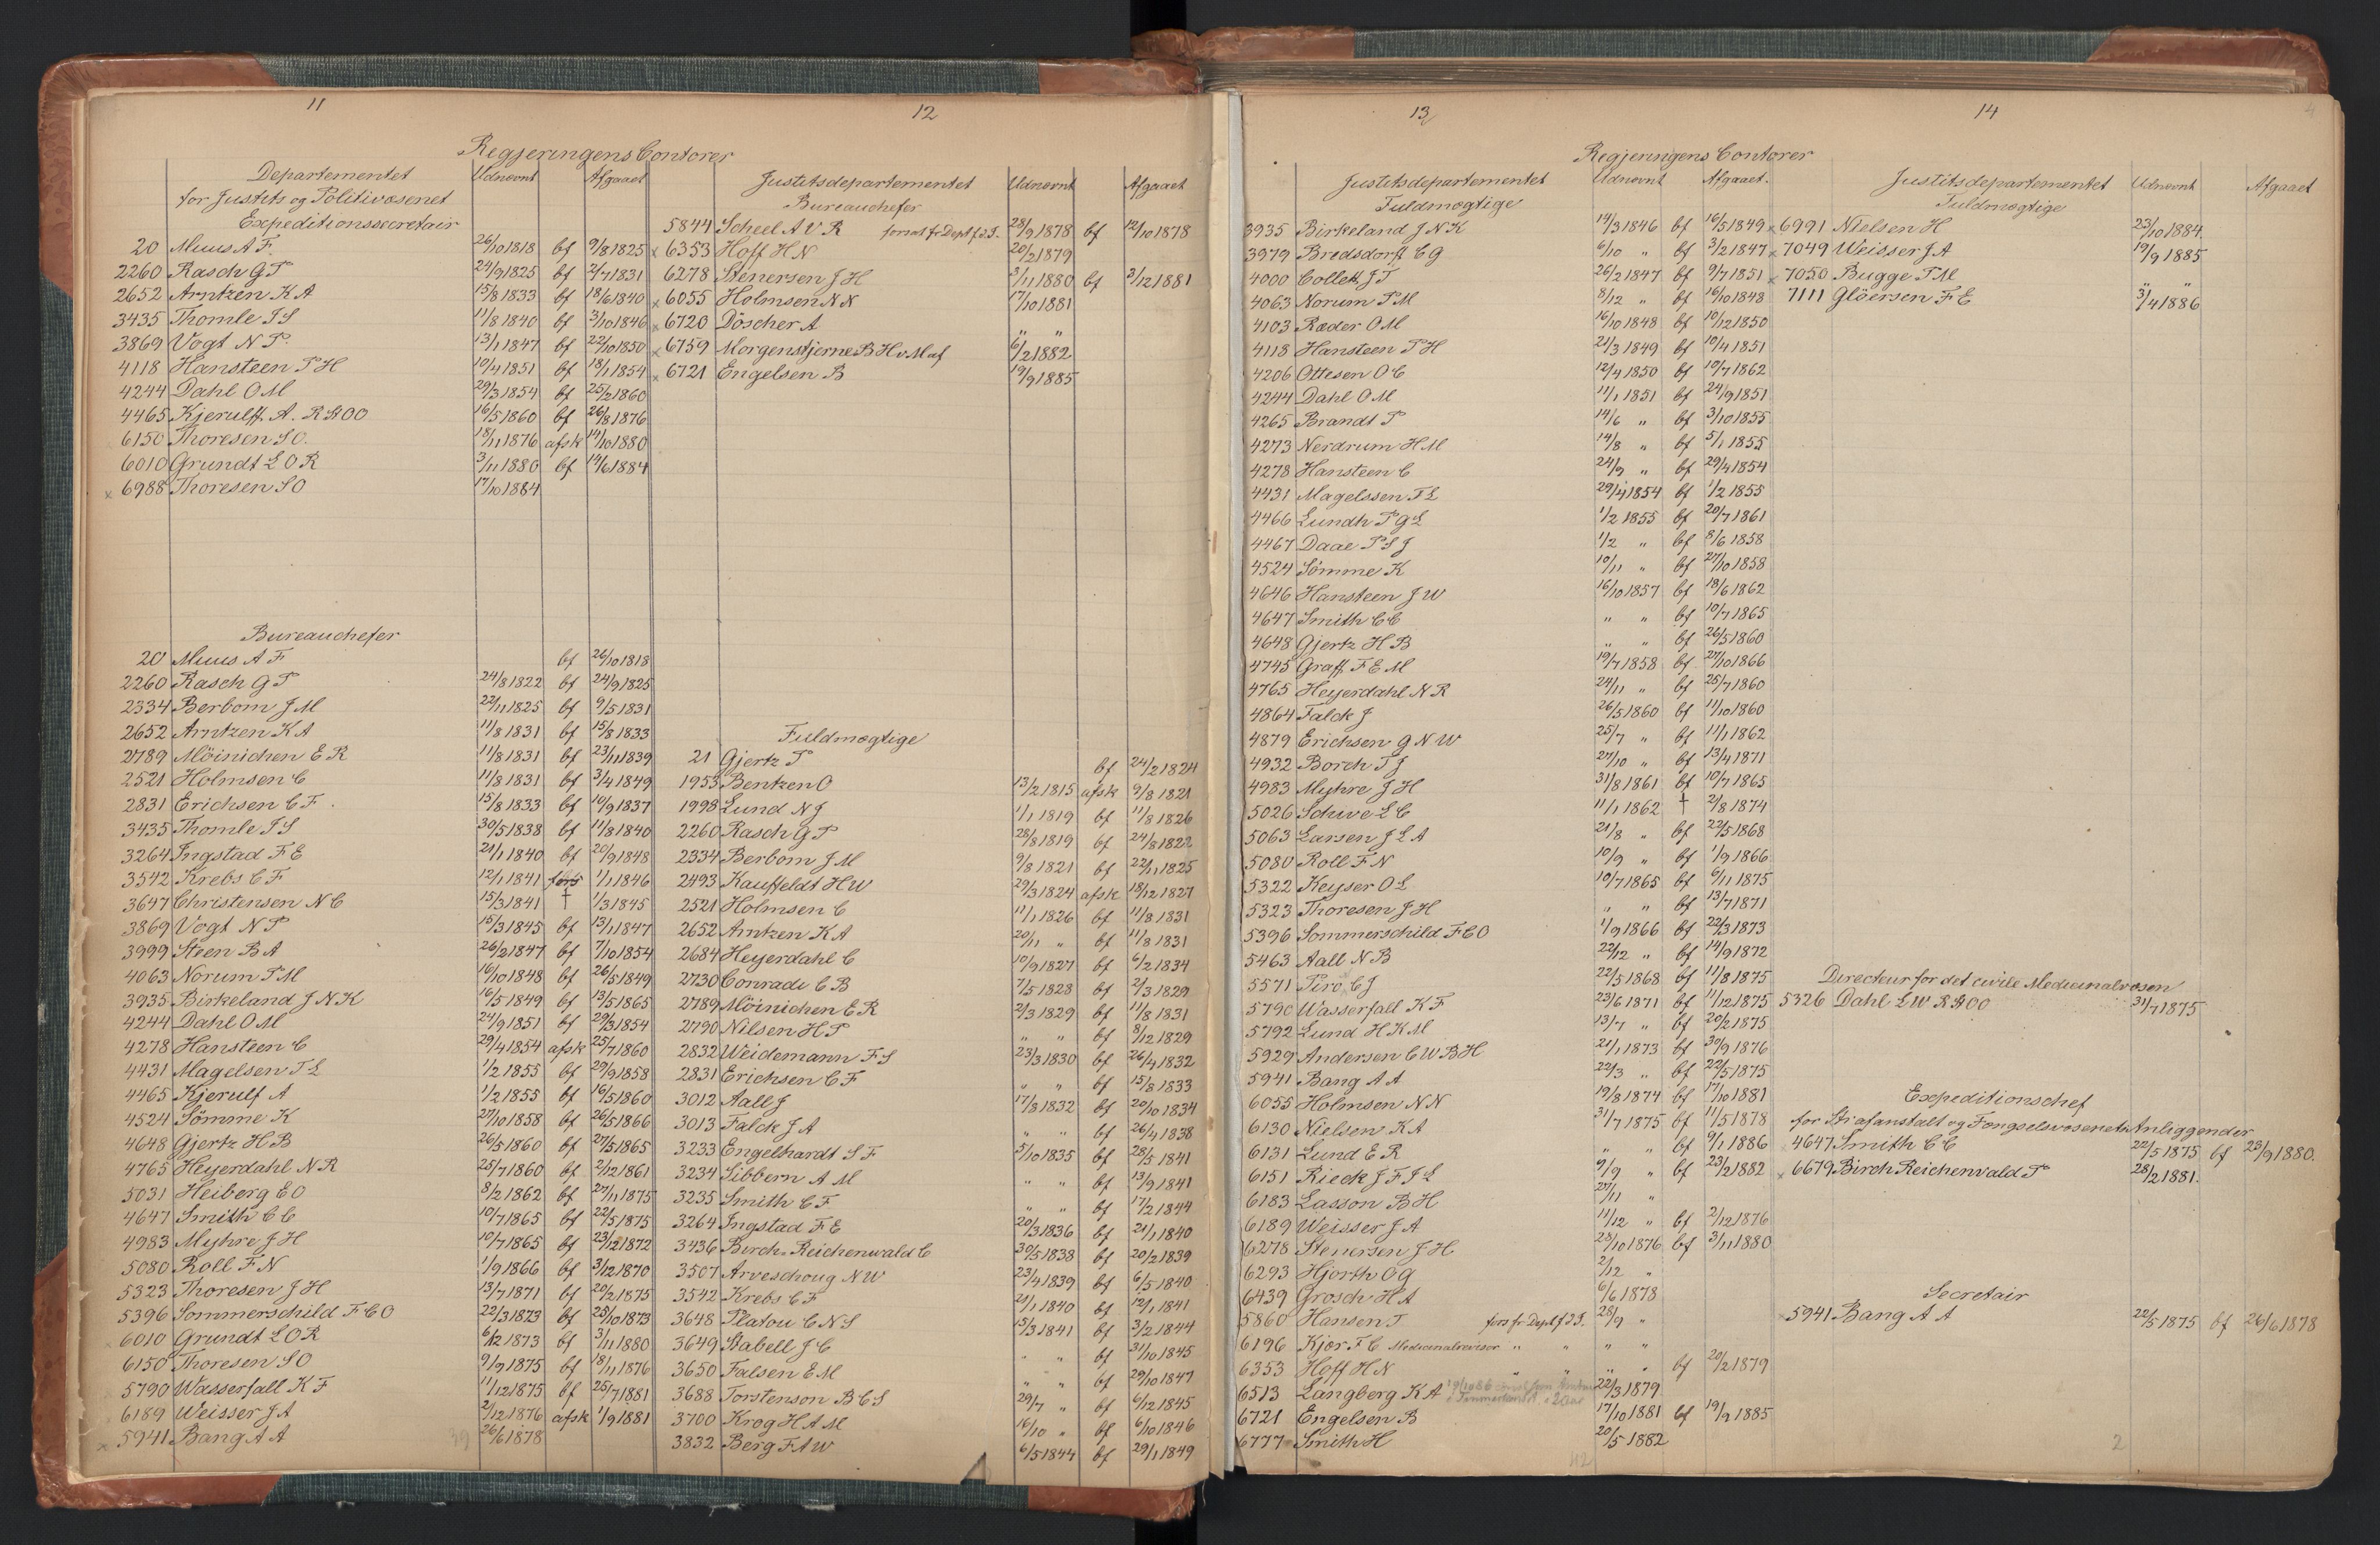 11
12
Regjeringens Contorer
Departementet
for Justits og Politivæsenet
Udnævnt
Afgaaet
Expeditionssecretair
20 Muus A F. 26/10 1818 bf 9/8 1825
2260 Rasch G P 24/9 1825 bf 2/7 1831
2652 Arntzen K A 15/8 1833 bf 18/6 1840
3435 Thomle I S 11/8 1840 bf 3/10 1846
3869 Vogt N P. 13/1 1847 bf 22/10 1850
4118 Hansteen P H 10/4 1851 bf 18/1 1854
4244 Dahl O M 29/3 1854 bf 25/2 1860
4465 Kjerulff, A. R St OO 16/5 1860 bf 26/8 1876
6150 Thoresen S O. 18/11 1876 afsk 14/10 1880
6010 Grundt L O R 3/11 1880 bf 14/6 1884
x 6988 Thoresen S O 17/10 1884
Bureauchefer
20 Muus A F bf 26/10 1818
2260 Rasch G P 24/8 1822 bf 24/9 1825
2334 Berbom J M 22/11 1825 bf 9/5 1831
2652 Arntzen K A 11/8 1831 bf 15/8 1833
2789 Möinichen E R 11/8 1831 bf 23/11 1839
2521 Holmsen C 11/8 1831 bf 3/4 1849
2831 Erichsen C F. 15/8 1833 bf 10/9 1837
3435 Thomle I S 30/5 1838 bf 11/8 1840
3264 Ingstad F E 21/1 1840 bf 20/9 1848
3542 Krebs C F 12/1 1841 fors 1/1 1846
3647 Christensen N C 15/3 1841 † 1/3 1845
3869 Vogt N P 15/3 1845 bf 13/1 1847
3999 Steen B A 26/2 1847 bf 7/10 1854
4063 Norum P M 16/10 1848 bf 26/5 1849
3935 Birkeland J N K 16/5 1849 bf 13/5 1865
4244 Dahl O M 24/9 1851 bf 29/3 1854
4278 Hansteen C 29/4 1854 afsk 25/7 1860
4431 Magelsen T L 1/2 1855 bf 29/9 1858
4465 Kjerulf A 1/2 1855 bf 16/5 1860
4524 Sömme K 27/10 1858 bf 26/5 1866
4648 Gjertz H B 26/5 1860 bf 27/5 1865
4765 Heyerdahl N R 25/7 1860 bf 2/12 1861
5031 Heiberg E O 8/2 1862 bf 27/11 1875
4647 Smith C C 10/7 1865 bf 22/5 1875
4983 Myhre J H 10/7 1865 bf 23/12 1872
5080 Roll F N 1/9 1866 bf 3/12 1870
5323 Thoresen J H 13/7 1871 bf 20/2 1875
5396 Sommerschild F C O 22/3 1873 bf 25/10 1873
x 6010 Grundt L O R 6/12 1873 bf 3/11 1880
6150 Thoresen S O 9/9 1875 bf 18/11 1876
5790 Wasserfall K F 11/12 1875 bf 25/7 1881
6189 Weisser J A 2/12 1876 afsk 1/9 1881
x 5941 Bang A A 39 26/6 1878
Justitsdepartementet
Udnævnt
Afgaaet
Bureauchefer
5844 Scheel A V R forsat fr Dept f I. 28/9 1878 bf 12/10 1878
x 6353 Hoff H N 20/2 1879
6278 Stenersen J H 3/11 1880 bf 3/12 1881
x 6055 Holmsen N N 17/10 1881
x 6720 Döscher A " "
x 6759 Morgenstjerne B H v M af 6/2 1882
x 6721 Engelsen B 19/9 1885
Fuldmægtige
21 Gjertz P bf 24/2 1824
1953 Bentzen O 13/2 1815 afsk 9/8 1821
1998 Lund N J 1/1 1819 bf 11/8 1826
2260 Rasch G P 28/8 1819 bf 24/8 1822
2334 Berbom J M 9/8 1821 bf 22/11 1825
2493 Kauffeldt H W 29/3 1824 afsk 18/12 1827
2521 Holmsen C 11/1 1826 bf 11/8 1831
2652 Arntzen K A 20/11 " bf 11/8 1831
2684 Heyerdahl C 10/9 1827 bf 6/2 1834
2730 Conradi C B 7/5 1828 bf 2/3 1829
2789 Möinichen E R 2/3 1829 bf 11/8 1831
2790 Nilsen H P " " bf 8/12 1829
2832 Weidemann F S 23/3 1830 bf 26/4 1832
2831 Erichsen C F " " bf 15/8 1833
3012 Aall J 17/8 1832 bf 20/10 1834
3013 Falck J A " " bf 26/4 1838
3233 Engelhardt S F 5/10 1835 bf 28/5 1841
3234 Sibbern A M " " bf 13/9 1841
3235 Smith C F " " bf 17/2 1844
3264 Ingstad F E 20/3 1836 bf 21/1 1840
3436 Birch-Reichenwald C 30/5 1838 bf 20/2 1839
3507 Arveschoug N W 23/4 1839 bf 6/5 1840
3542 Krebs C F 21/1 1840 bf 12/1 1841
3648 Platou C N S 15/3 1841 bf 3/2 1844
3649 Stabell J C " " bf 31/10 1845
3650 Falsen E M " " bf 29/10 1847
3688 Torstenson B C S 29/7 " bf 6/12 1845
3700 Krog H A M 16/10 " bf 6/10 1846
3832 Berg F A W 6/5 1844 bf 29/1 1849
13
14
4
Regjeringens Contorer
Justitsdepartementet
Udnævnt
Afgaaet.
Fuldmægtige
3935 Birkeland J N K 14/3 1846 bf 16/5 1849
3979 Bredsdorff C G 6/10 " bf 3/2 1847
4000 Collett, J T 26/2 1847 bf 9/7 1851
4063 Norum P M 8/12 " bf 16/10 1848
4103 Ræder O M 16/10 1848 bf 10/12 1850
4118 Hansteen P H 21/3 1849 bf 10/4 1851
4206 Ottesen O C 12/4 1850 bf 19/7 1862
4244 Dahl O M 11/1 1851 bf 24/9 1851
4265 Brandt P 14/6 " bf 3/10 1855
4273 Nerdrum H M 14/8 " bf 5/1 1855
4278 Hansteen C 24/9 " bf 29/4 1854
4431 Magelssen T L 29/4 1854 bf 1/2 1855
4466 Lundh P G L 1/2 1855 bf 20/7 1861
4467 Daae P S J 1/2 " bf 8/6 1858
4524 Sömme K 10/11 " bf 27/10 1858
4646 Hansteen J W 16/10 1857 bf 18/6 1862
4647 Smith C C " " bf 10/7 1865
4648 Gjertz H B " " bf 26/5 1860
4745 Graff F E M 19/7 1858 bf 27/10 1866
4765 Heyerdahl N R 24/11 " bf 25/7 1860
4864 Falck J 26/5 1860 bf 11/10 1860
4879 Erichsen G N W 25/7 " bf 11/1 1862
4932 Borch T J 27/10 " bf 13/4 1871
4983 Myhre J H 31/8 1861 bf 10/7 1865
5026 Schwe L C 11/1 1862 † 2/8 1874
5063 Larsen J L A 21/8 " bf 22/5 1868
5080 Roll F N 10/9 " bf 1/9 1866
5322 Keyser O L 10/7 1865 bf 6/11 1875
5323 Thoresen J H " " bf 13/7 1871
5396 Sommerschild F C O 1/9 1866 bf 22/3 1873
5463 Aall N B 22/12 " bf 14/9 1872
5571 Piro, C J 22/5 1868 bf 11/8 1875
5790 Wasserfall K F 23/6 1871 bf 11/12 1875
5792 Lund H K M 13/7 " bf 20/2 1875
5929 Andersen C W B H 21/1 1873 bf 30/9 1876
5941 Bang A A 22/3 " bf 22/5 1875
6055 Holmsen N N 19/8 1874 bf 17/10 1881
6130 Nielsen K A 31/7 1875 bf 11/5 1878
6131 Lund E R " " bf 9/1 1886
6151 Rieck J F J L 9/9 " bf 23/2 1882
6183 Lasson B H 27/11 "
6189 Weisser J A 11/12 " bf 2/12 1876
6278 Stenersen J H. 28/10 1876 bf 3/11 1880
6293 Hjorth O G 2/12 "
6439 Grosch H A 6/6 1878
5860 Hansen T fors fr Dept f I. 28/9 "
6196 Kjær F C Medicinalrevisor " " " "
6353 Hoff H N " " " " bf 20/2 1879
6513 Langberg K A 22/3 1879
6721 Engelsen B 17/10 1881 bf 19/9 1885
6777 Smith H 20/5 1882
42
Justitsdepartementet
Udnævnt
Afgaaet
Fuldmægtige
x 6991 Nielsen H 23/10 1884
x 7049 Weisser J A 19/9 1885
x 7050 Bugge P M " "
7111 Glöersen F E 3/4 1886
Directeur for det civile Medicinalvæsen
5326 Dahl L W R St OO 31/7 1875
Expeditionschef
for Strafanstalt og Fængselsvæsenets Anliggender
4647 Smith C C 22/5 1875 bf 23/9 1880.
x 6679 Birch Reichenwald P 28/2 1881.
Secretair
x 5941 Bang A A 22/5 1875 bf 26/6 1878
2